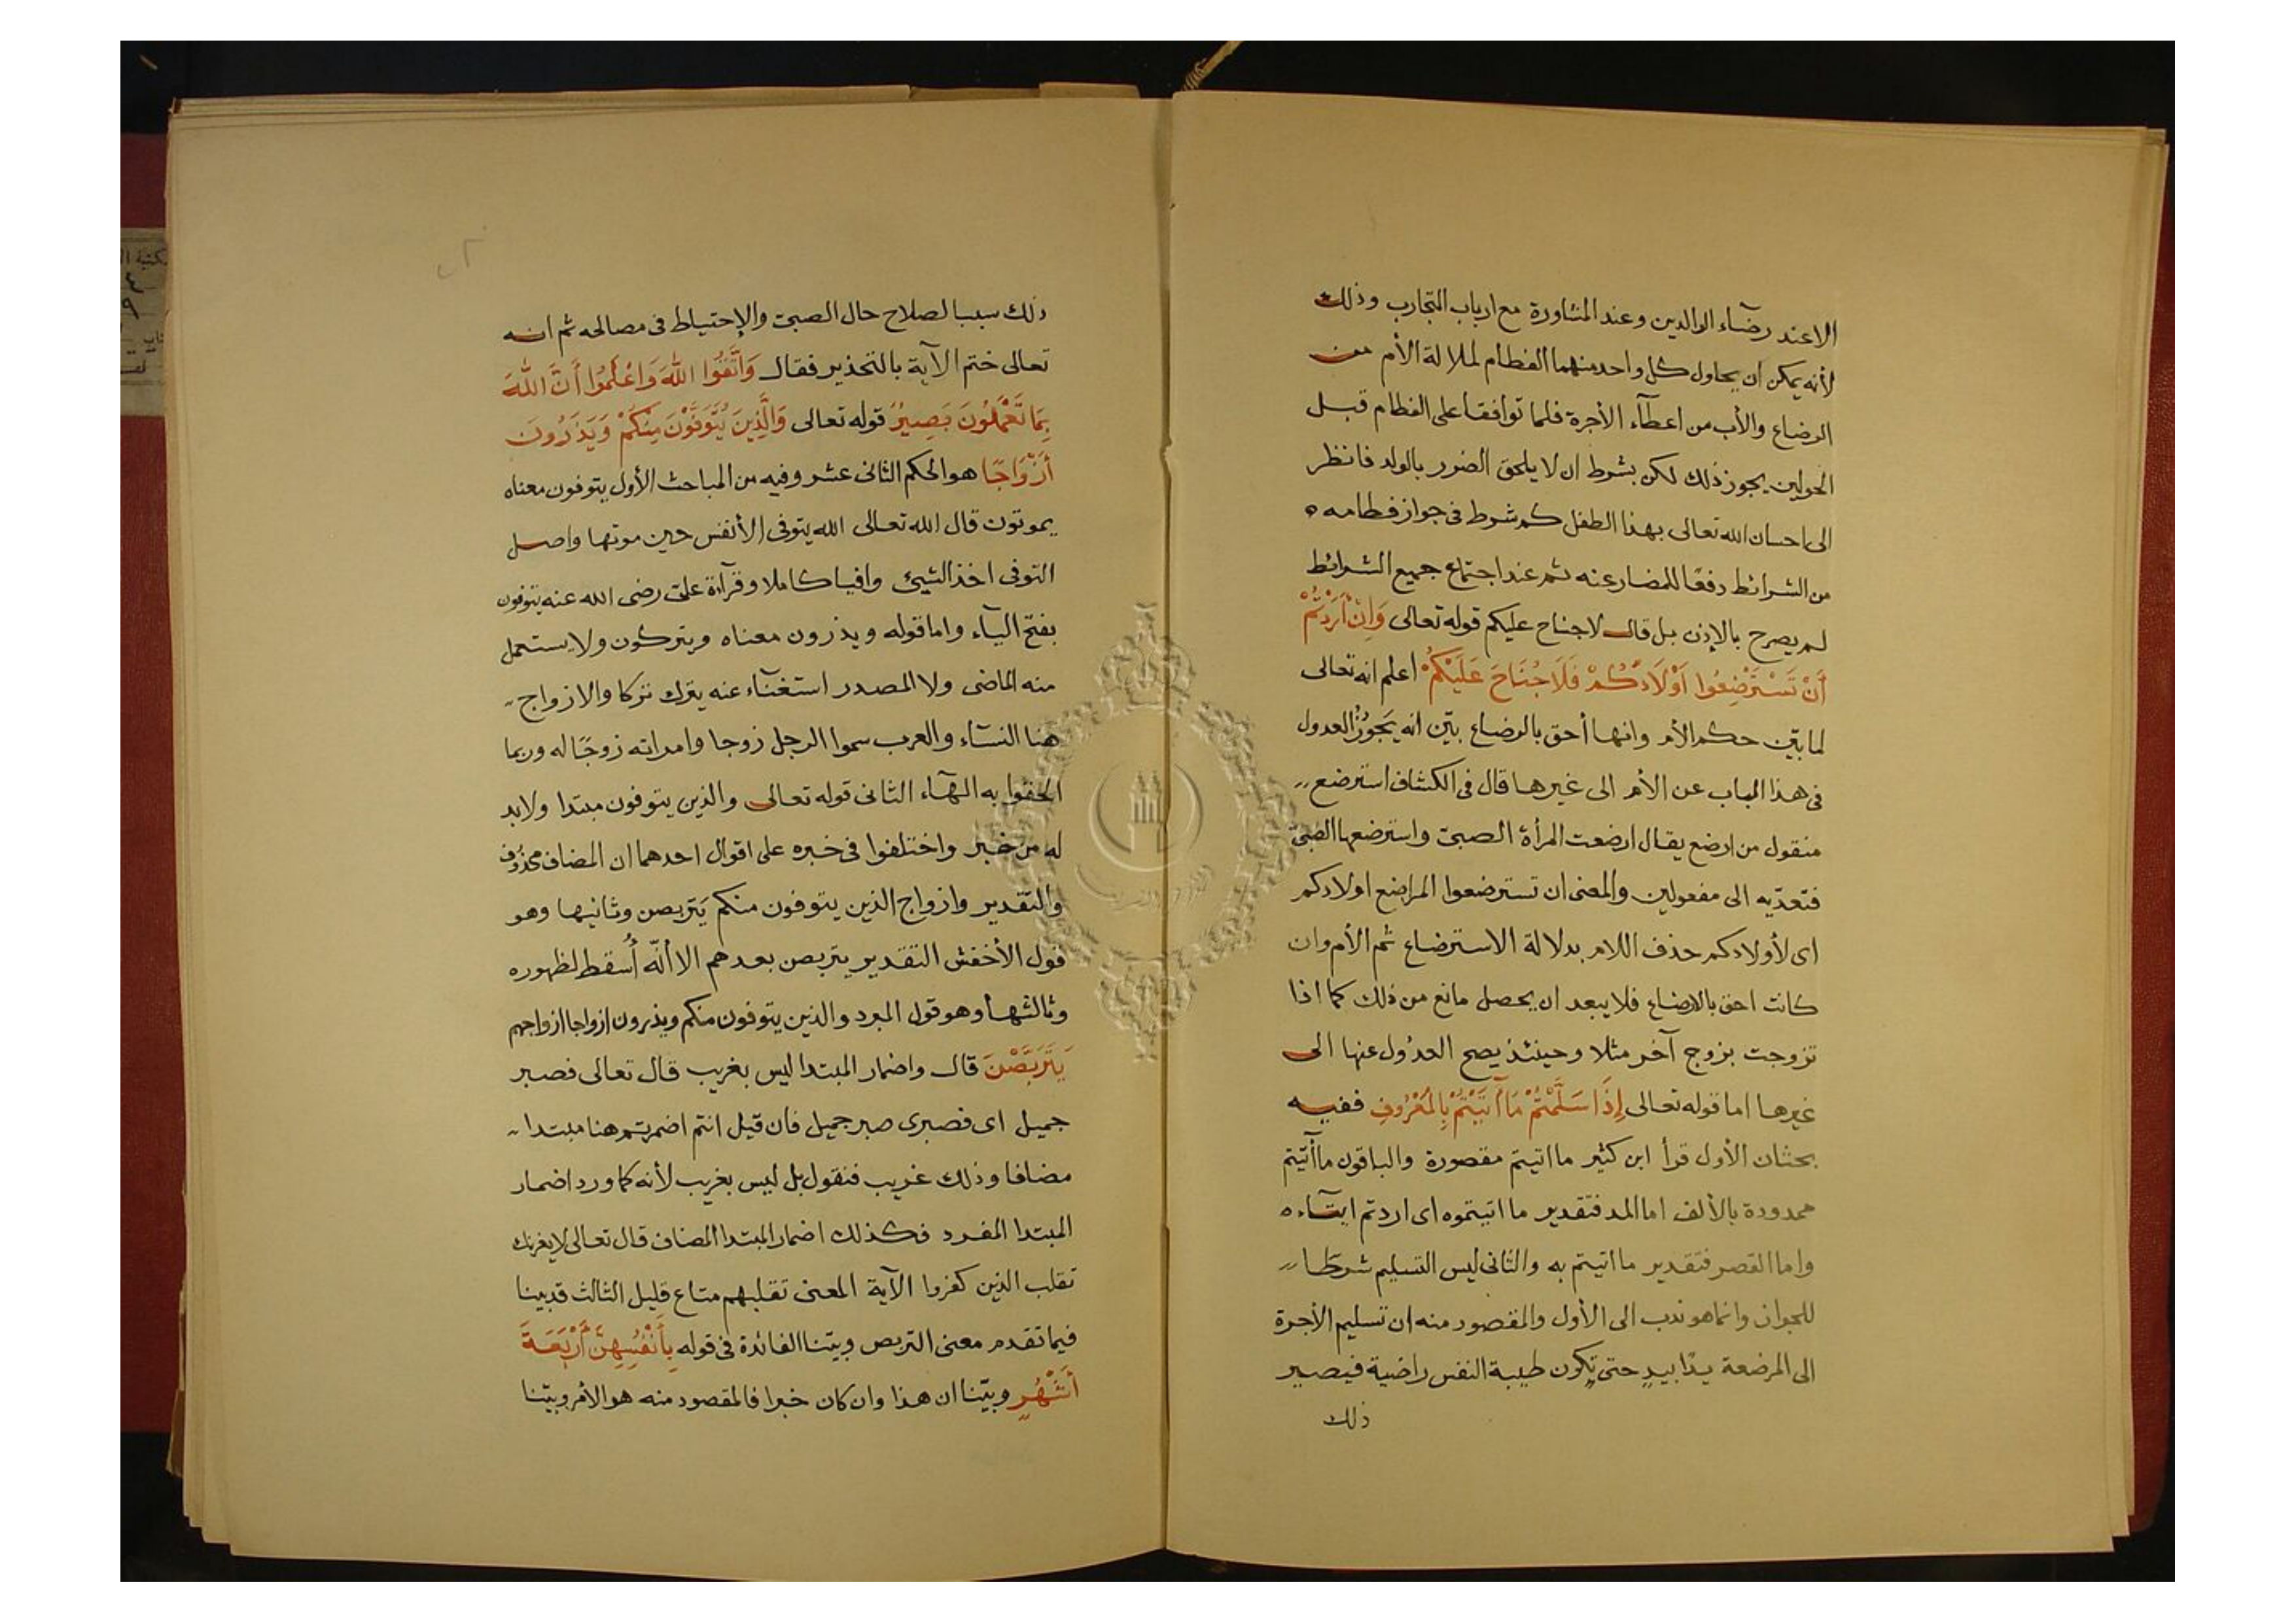 الا عند رضآء الوالدين وعند المشاورة مع ارباب التجارب وذلك
لأنه يمكن ان يحاول كل واحد منهما الفطام لملالة الأم من
الرضاع والأب من اعطآء الأجرة فلما توافقا على الفطام قبل
الحولين يجوز ذلك لكن بشرط ان لا يلحق الضرر بالولد فانظر
الى احسان الله تعالى بهذا الطفل كم شرط فى جواز فطامه ه
من الشرائط دفعًا للمضار عنه ثم عند اجتماع جميع الشرائط
لم يصرح بالإذن بل قال لا جناح عليكم قوله تعالى وَاِنْ أَرَدْتُمْ
أَنْ تَسْتَرْضِعُوا اَوْلَادَكُمْ فَلَا جُنَاحَ عَلَيْكُمْ اعلم انه تعالى
لما بيّن حكم الأم وانها أحق بالرضاع بيّن انه يَجوُزُ العدول
فى هذا الباب عن الأم الى غيرها قال فى الكشاف استرضع
منقول من ارضع يقال ارضعت المرأة الصبىّ واسترضعها الصّبىّ
فتعدّيه الى مفعولين والمعنى ان تسترضعوا المراضع اولادكم
اى لأولادكم حذف اللام بدلالة الاسترضاع ثم الأم وان
كانت احق بالارضاع فلا يبعد ان يحصل مانع من ذلك كما اذا
تزوجت بزوج آخر مثلا وحينئذ يصح العدُول عنها الى
غيرها اما قوله تعالى إِذَا سَلَّمْتُمْ مَا آتَيْتُمْ بِالْمَعْرُوفِ ففيه
بحثان الأول قرأ ابن كثير ما اتيتم مقصورة والباقون ما آتيتم
ممدودة بالألف اما المد فتقدير ما اتيتموه اى اردتم ايتآءه
واما القصر فتقدير ما اتيتم به والثانى ليس التسليم شرطا
للجواز وانما هو ندب الى الأول والمقصود منه ان تسليم الأجرة
الى المرضعة يدًا بيدٍ حتى تكون طيبة النفس راضية فيصير
ذلك
ذلك سببا لصلاح حال الصبىّ والإحتياط فى مصالحه ثم انه
تعالى ختم الآية بالتحذير فقال وَاتَّقُوا اللَّهَ وَاعْلَمُوا أَنَّ اللَّهَ
بِمَا تَعْمَلُونَ بَصِيرٌ قوله تعالى وَالَّذِينَ يُتَوَفَّوْنَ مِنْكُمْ وَيَذَرُونَ
أَزْوَاجًا هو الحكم الثانى عشر وفيه من المباحث الأول يتوفون معناه
يموتون قال الله تعالى الله يتوفى الأنفس حين موتها واصل
التوفى اخذ الشيئ وافيا كاملا وقرآءة علىّ رضى الله عنه يتوفون
بفتح اليآء واما قوله ويذرون معناه ويتركون ولا يستعمل
منه الماضى ولا المصدر استغنآء عنه بترك تركا والازواج
هنا النسآء والعرب سموا الرجل زوجا وامراته زوجًا له وربما
الحقوا به الهآء الثانى قوله تعالى والذين يتوفون مبتدا ولابد
له من خبر واختلفوا فى خبره على اقوال احدهما ان المضاف محذوف
والتقدير وازواج الذين يتوفون منكم يَتربصن وثانيها وهو
قول الأخفش التقدير يتربصن بعدهم الا أنّه أُسقط لظهوره
وثالثها وهو قول المبرد والذين يتوفون منكم ويذرون ازواجا ازواجهم
يَتَرَبَّصْنَ قال واضمار المبتدا ليس بغريب قال تعالى فصبر
جميل اى فصبرى صبر جميل فان قيل انتم اضمرتم هنا مبتدا
مضافا وذلك غريب فنقول بل ليس بغريب لأنه كما ورد اضمار
المبتدا المفرد فكذلك اضمار المبتدا المضاف قال تعالى لا يغرنك
تقلب الذين كفروا الآية المعنى تقلبهم متاع قليل الثالث قد بينا
فيما تقدم معنى التربص وبيّنا الفائدة فى قوله بِأَنْفُسِهِنَّ أَرْبَعَةَ
أَشْهُرٍ وبيّنا ان هذا وان كان خبرا فالمقصود منه هو الأمر وبيّنا